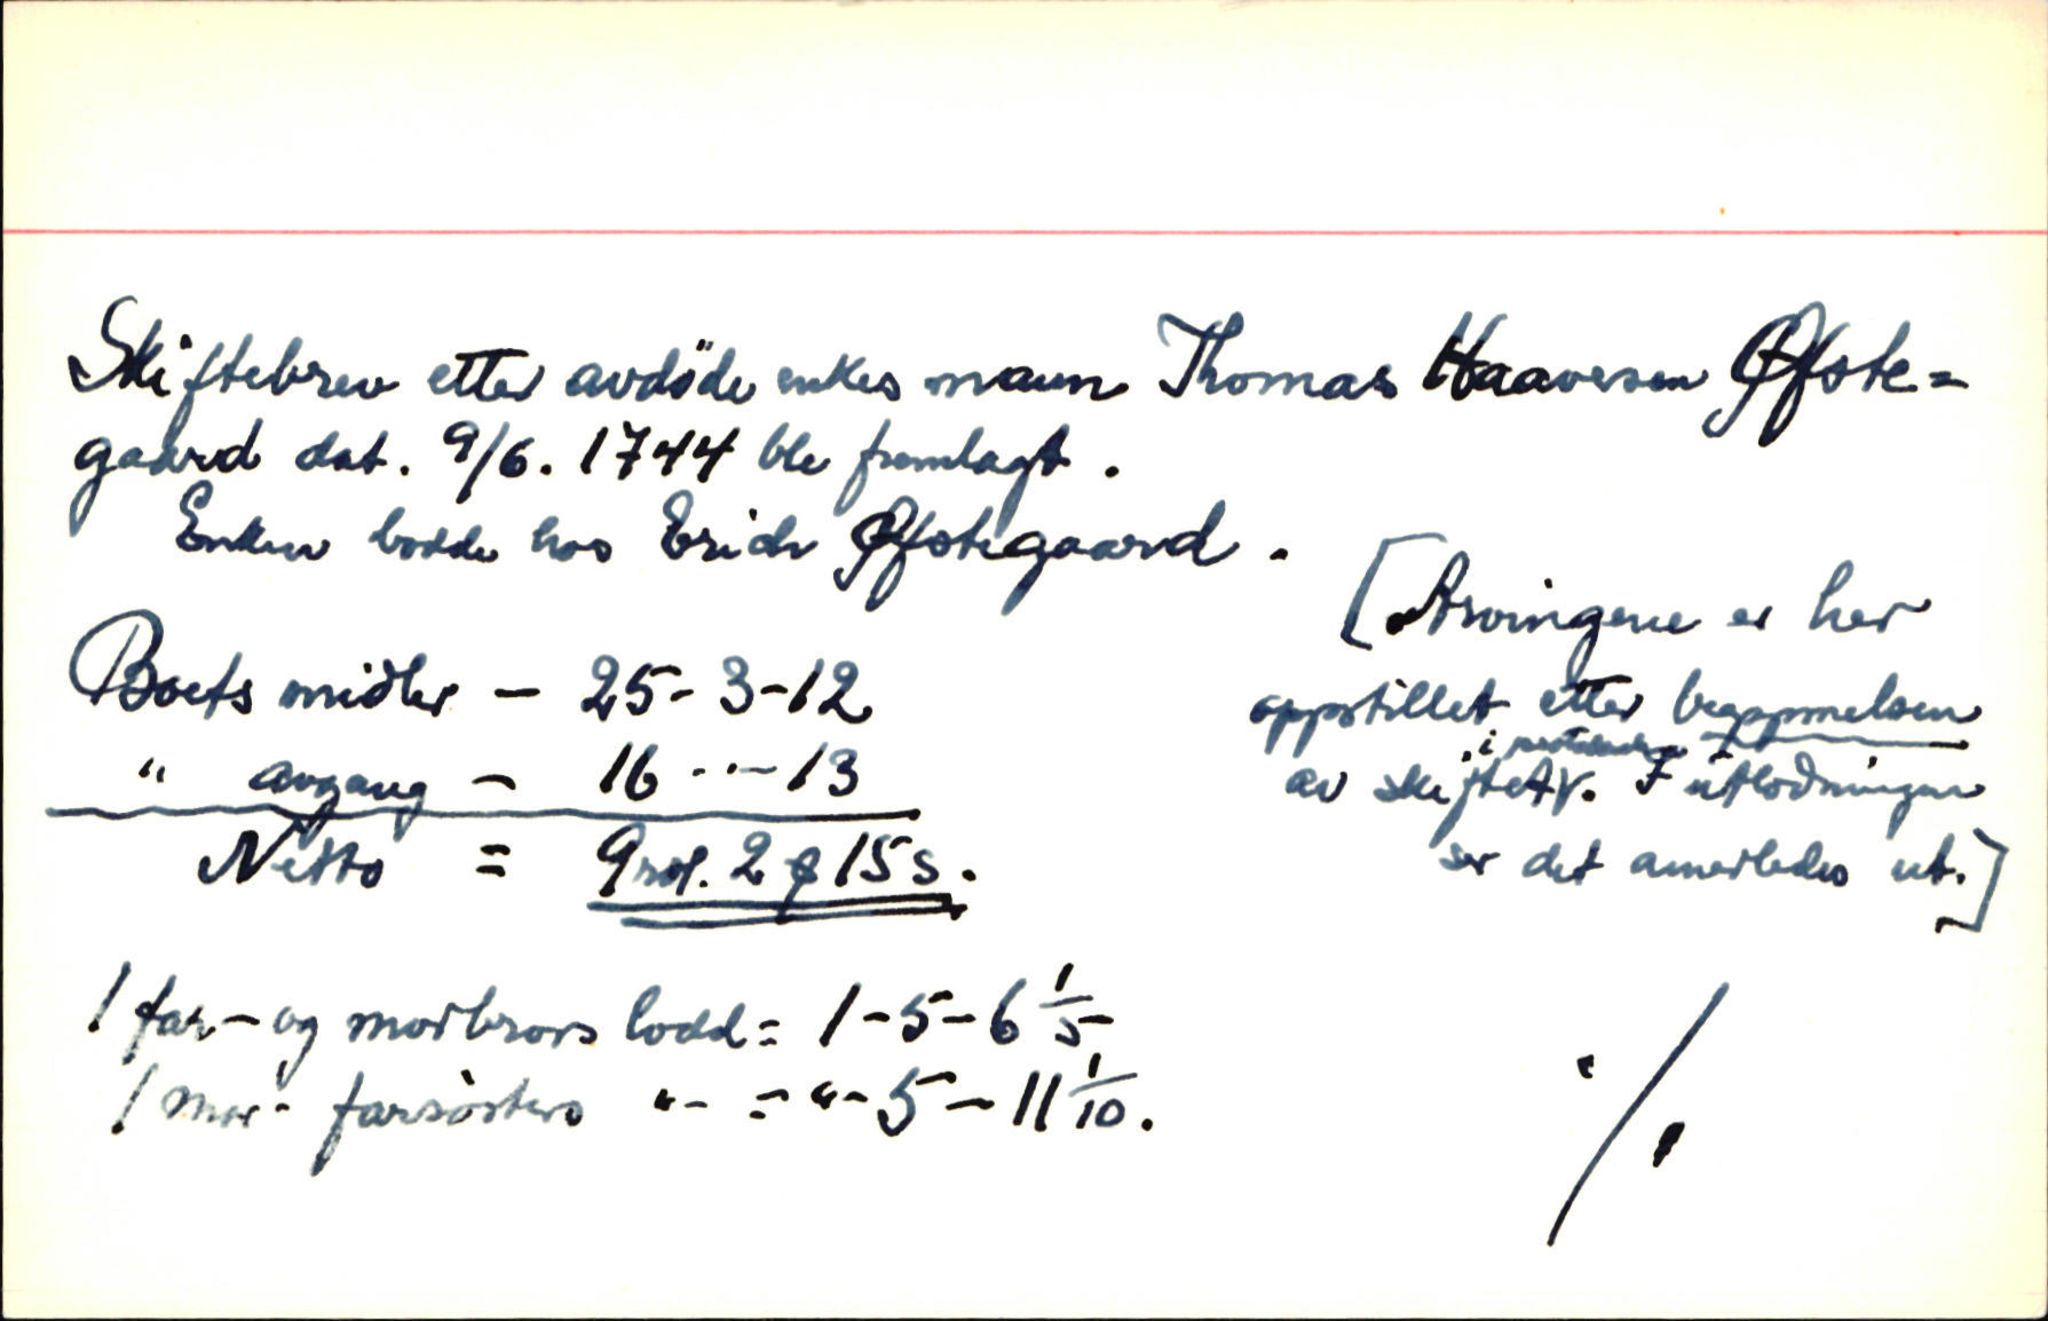 Skiftebrev etter avdöde enkes mann Thomas Haavorsen Øfste=
gaard dat. 9/6. 1744 ble fremlagt.
Enken bodde hos Erich Øfstegaard.
Boets midler - 25-3-12
" avgang - 16 ... - 13
Netto = 9 rdl. 2 ꝑ 15 s.
1 far- og morbrors lodd = 1-5-6 1/5
1 mor- farsösters "- = "-5-11 1/10.
[Arvingene er her
oppstillet etter begynnelsen
av skiftet i protokollen. I utlodningen
ser det anerledes ut.]
./.